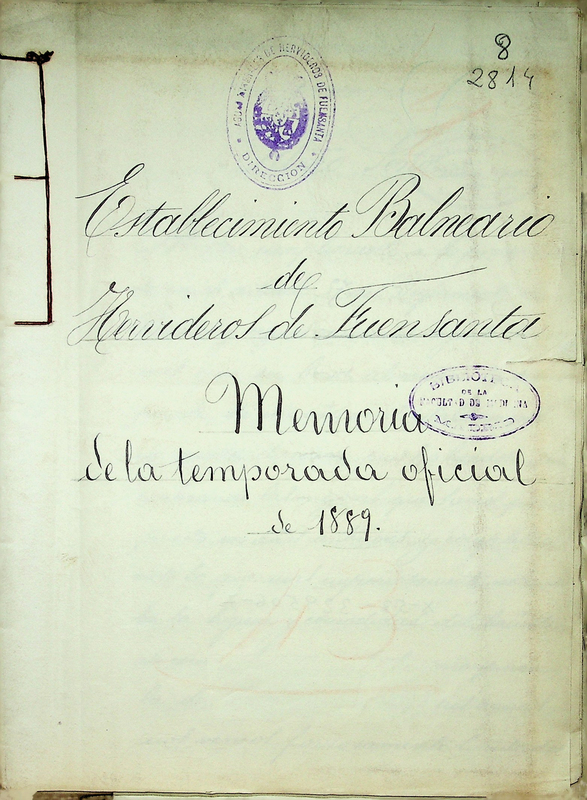 8
2814
DE HERVIDEROS DE FUENSANTA
DIRECCIÓN
Establecimiento Balneario
de
Hervideros de Fuensanta
BIBLIOTECA
DE LA
FACULTAD DE MEDICINA
Memoria
de la temporada oficial
de 1889.